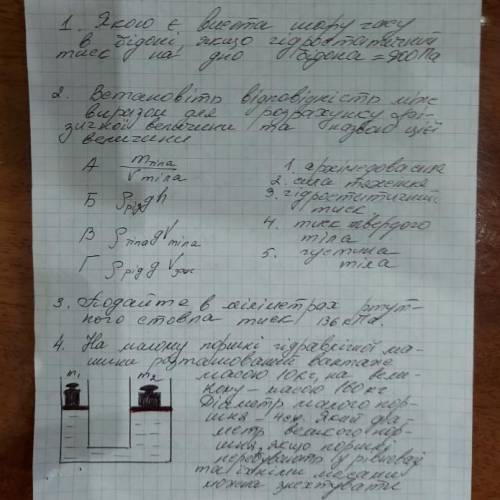 1. Якою є висота шару гасу
в бідоні, якщо гідростатичний
тиск на дно бідона = 900 Па
2. Встановіть відповідність між
виразом для розрахунку фі-
зичної величини та назвою цієї
величини
А mтіла / Vтіла
Б ρрід gh
В ρтіла gVтіла
Г ρрід g Vзан
1. архімедова сила
2. сила тяжіння
3. гідростатичний
тиск
4. тиск твердого
тіла
5. густина
тіла
3. Подайте в міліметрах ртут-
ного стовпа тиск 136 кПа.
4. На малому поршні гідравлічної ма-
шини розташований вантаж
масою 10кг, на вели-
кому – масою 160 кг
Діаметр малого пор-
шня – 4см. Який діа-
метр великого пор-
шня, якщо поршні
перебувають у рівновазі
та їхніми масами
можна знехтувати
m₁
m₂